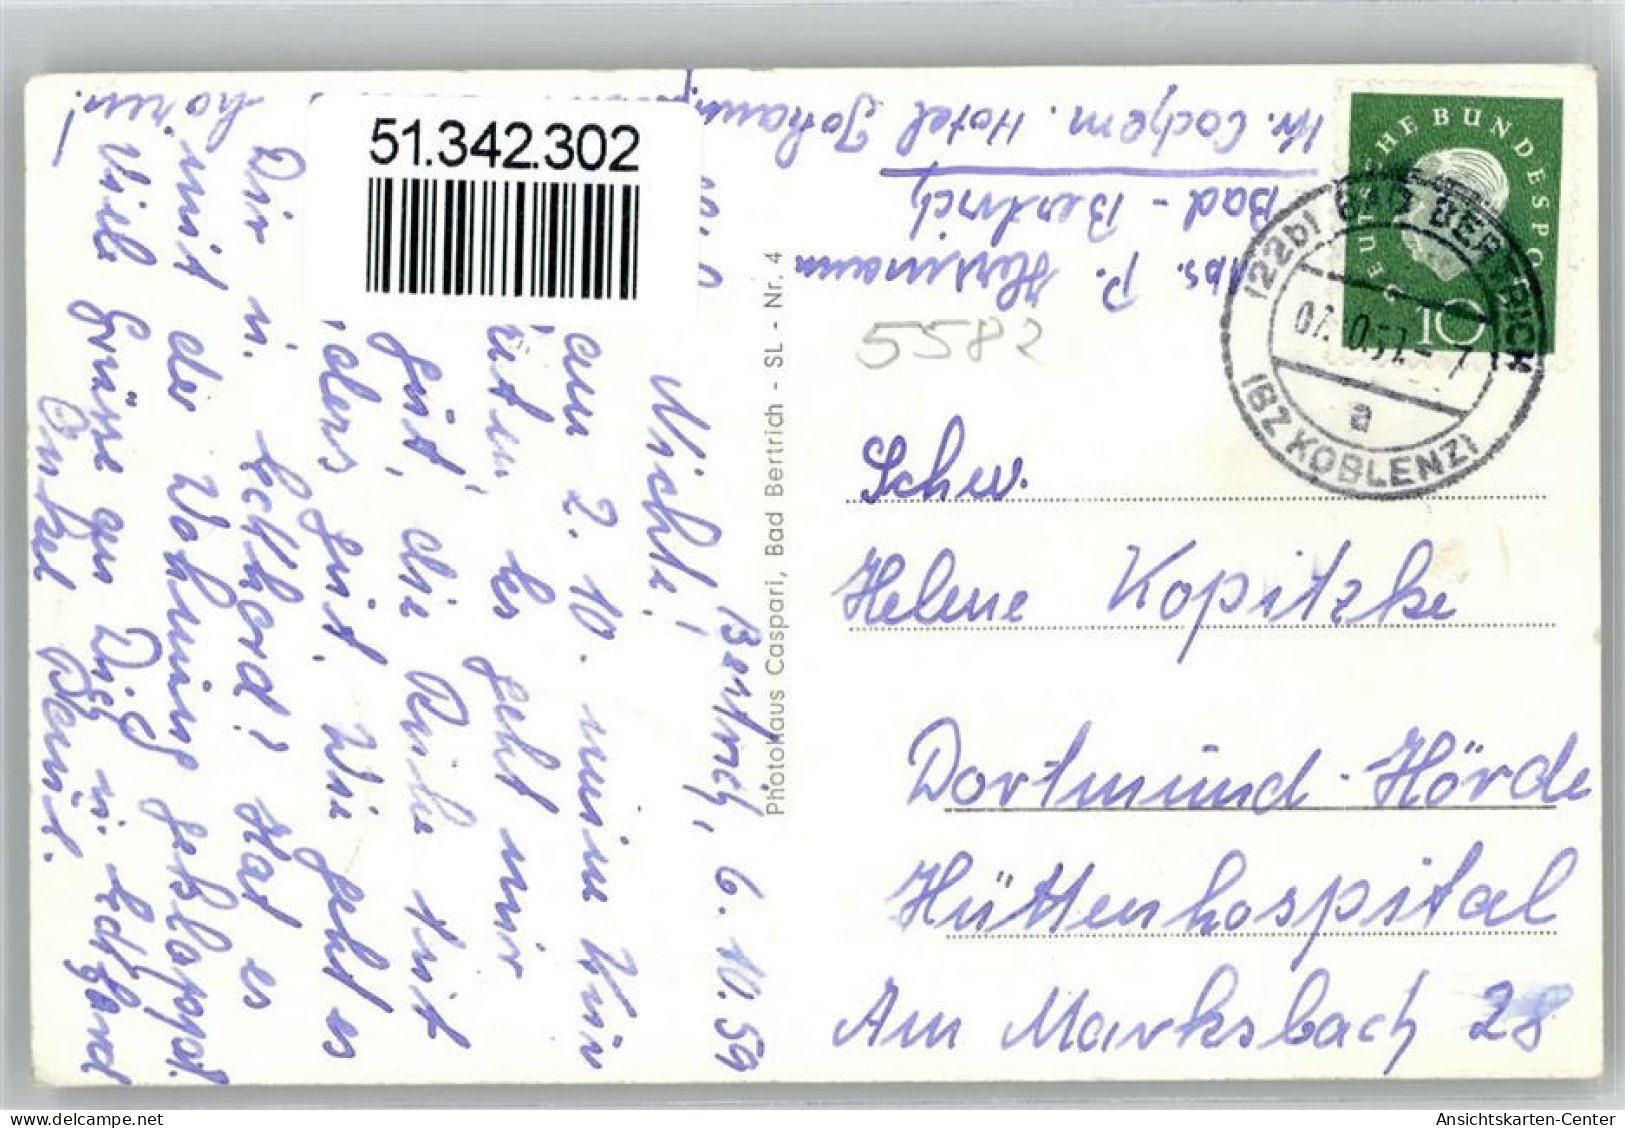 51.342.302
Bertrich, 6.10.59
Nichte!
am 2. 10. meine Kur
es geht mir
gut, die Ruhe tut
gut. Wie geht es
Dir u. Eckhard? Hat es
mit der Wohnung geklappt.
Viele Grüsse an Dich u. Eckhard
Onkel Paul.
hören!
Photohaus Caspari, Bad Bertrich - SL - Nr. 4
Abs. P. Hermann
Bad - Bertrich
Kr. Cochem. Hotel Johann
5582
DEUTSCHE BUNDESPOST
10
(22b) BAD BERTRICH
a
(BZ KOBLENZ)
Schw.
Helene Kopitzke
Dortmund - Hörde
Hüttenhospital
Am Marksbach 28
delcampe.net
Ansichtskarten-Center